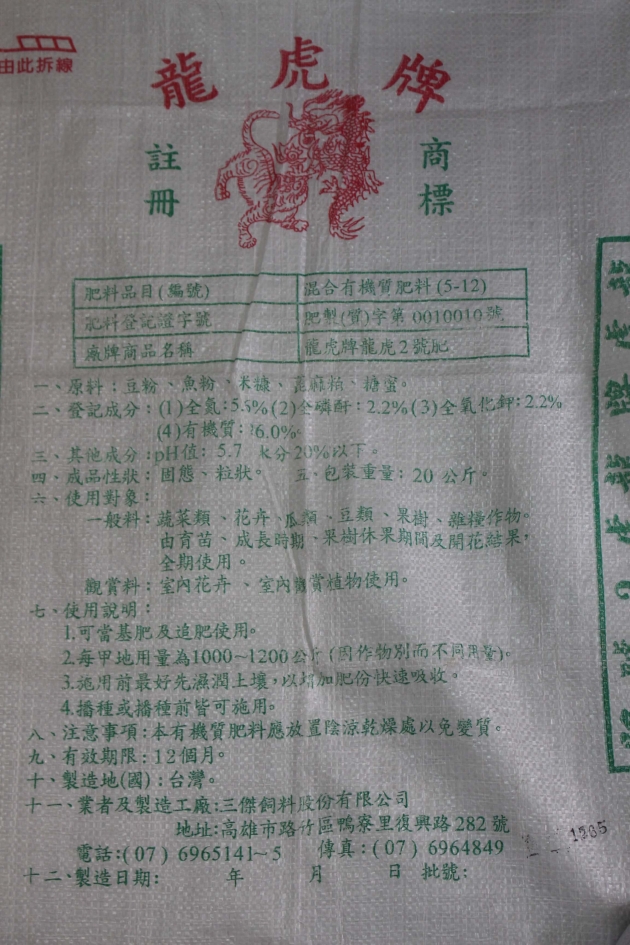 由此拆線
龍虎牌
註冊
商標
肥料品目(編號) 混合有機質肥料(5-12)
肥料登記證字號 肥製(質)字第0010010號
廠牌商品名稱 龍虎牌龍虎2號肥
一、原料：豆粉、魚粉、米糠、蓖麻粕、糖蜜。
二、登記成分：(1)全氮:5.5%(2)全磷酐：2.2%(3)全氧化鉀:2.2%
(4)有機質: 6.0%
三、其他成分:pH值：5.7 水分20%以下。
四、成品性狀：固態、粒狀。 五、包裝重量：20公斤。
六、使用對象：
一般料：蔬菜類、花卉、瓜類、豆類、果樹、雜糧作物。
由育苗、成長時期、果樹休果期間及開花結果，
全期使用。
觀賞料：室內花卉、室內觀賞植物使用。
七、使用說明：
1.可當基肥及追肥使用。
2.每甲地用量為1000~1200公斤(因作物別而不同用量)。
3.施用前最好先濕潤土壤，以增加肥份快速吸收。
4.播種或播種前皆可施用。
八、注意事項:本有機質肥料應放置陰涼乾燥處以免變質。
九、有效期限:12個月。
十、製造地(國)：台灣。
十一、業者及製造工廠:三傑飼料股份有限公司
地址:高雄市路竹區鴨寮里復興路282號
電話:(07) 6965141~5 傳真:(07) 6964849
十二、製造日期： 年 月 日 批號:
1205